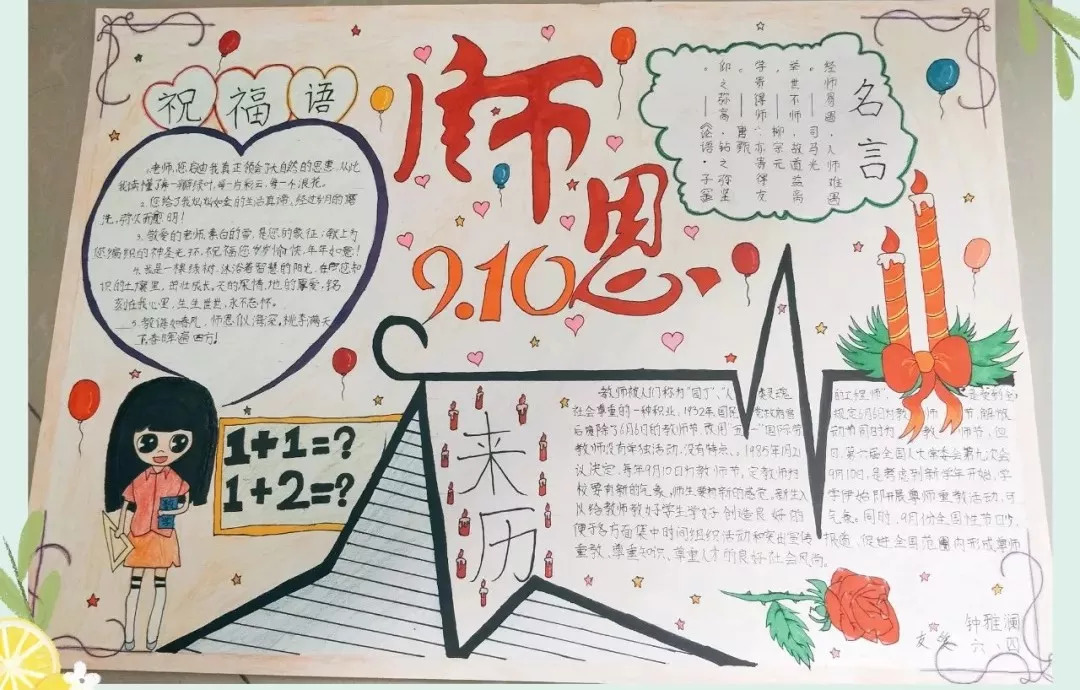 祝福语
1.老师,您启迪我真正领会了大自然的思想,从此
我读懂了每一瓣绿叶,每一片彩云,每一个浪花。
3.敬爱的老师,素白的雪,是您的象征;献上为
您编织的神圣光环,祝福您岁岁愉快,年年如意!
4.我是一棵绿树,沐浴着智慧的阳光,在
识的土壤里,茁壮成长。天的深情,地的厚爱,铭
刻在我心里,生生世世,永不忘怀。
5.教诲如春风,师恩似海深。桃李满天
春晖遍四方!
师恩
9.10
名言
经师易遇,人师难遇
——司马光
举世不师,故道益离
——柳宗元
学贵得师,亦贵得友
——唐甄
仰之弥高,钻之弥坚
——《论语·子罕
1+1=?
1+2=?
来历
教师被人们称为"园丁"、"人
社会尊重的一种职业,1932年,国民党政府
规定6月6日为教师节,解放
后废除了6月6日的教师节,改用"五一"国际劳
动节同时为教师节,但
教师没有单独活动,没有特点。1985年1月21
日,第六届全国人大常委会第九次会
议决定,每年9月10日为教师节,定教师节
9月10日,是考虑到新学年开始,学
校要有新的气象,师生要有新的感觉。新生入
学伊始即开展尊师重教活动,可
以给教师教好学生学好创造良好的
气氛。同时,9月份全国性节日少,
便于各方面集中时间组织活动和突出宣传
报道,促进全国范围内形成尊师
重教、尊重知识、尊重人才的良好社会风尚。
钟雅澜
六、四